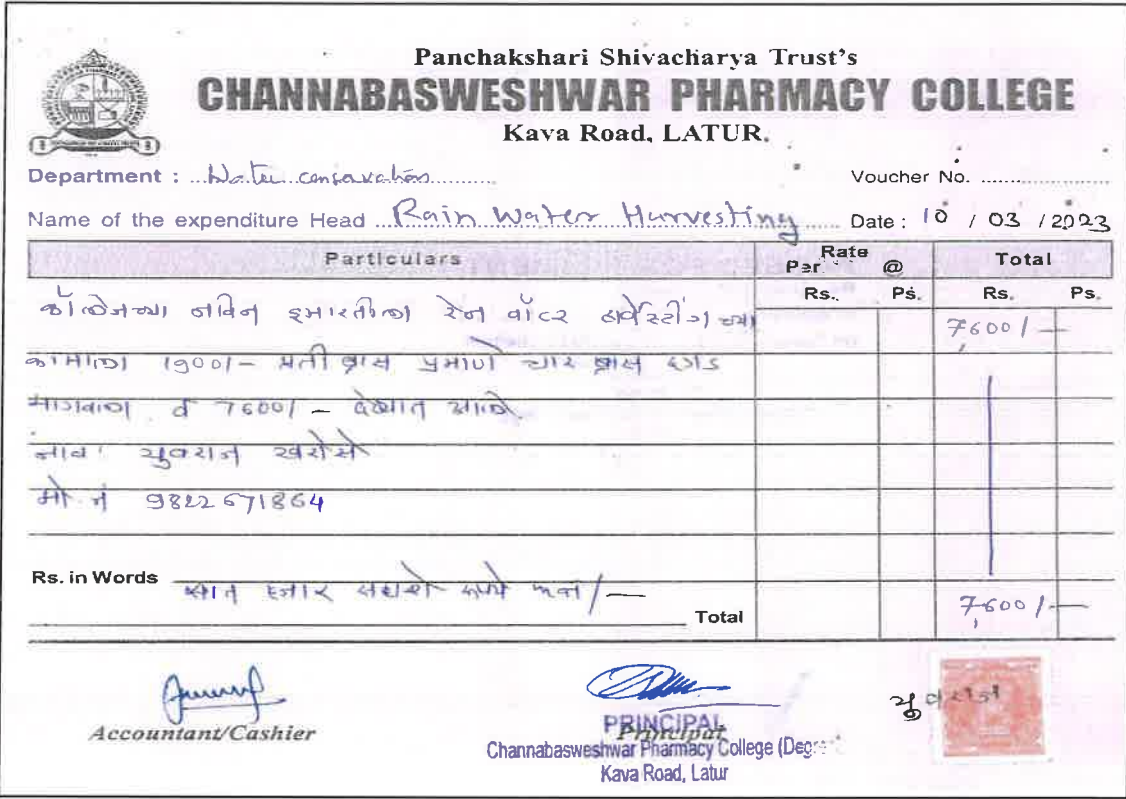 Panchakshari Shivacharya Trust's
CHANNABASWESHWAR PHARMACY COLLEGE
Kava Road, LATUR.
Department : Water consavation
Voucher No.
Name of the expenditure Head Rain Water Harvesting Date : 10 / 03 / 2023
Particulars Rate Per @ Total
Rs. Ps. Rs. Ps.
कॉलेजच्या नविन इमारतीला रेन वॉटर हार्वेस्टींग च्या 7600/-
कामाला 1900/- प्रती ब्रास प्रमाणे चार ब्रास दगड
मागवाला व 7600/- देण्यात आले.
नाव: युवराज खरोसे
मो. नं 9822671864
Rs. in Words सात हजार सहाशे रुपये मात्र/-
Total 7600/-
युवराज
Accountant/Cashier
Principal
PRINCIPAL
Channabasweshwar Pharmacy College (Degree
Kava Road, Latur